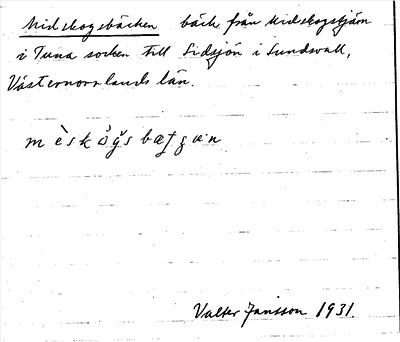 Midskogsbäcken bäck från Midskogstjärn
i Tuna socken till Sidsjön i Sundsvall,
Västernorrlands län.
Valter Jansson 1931.